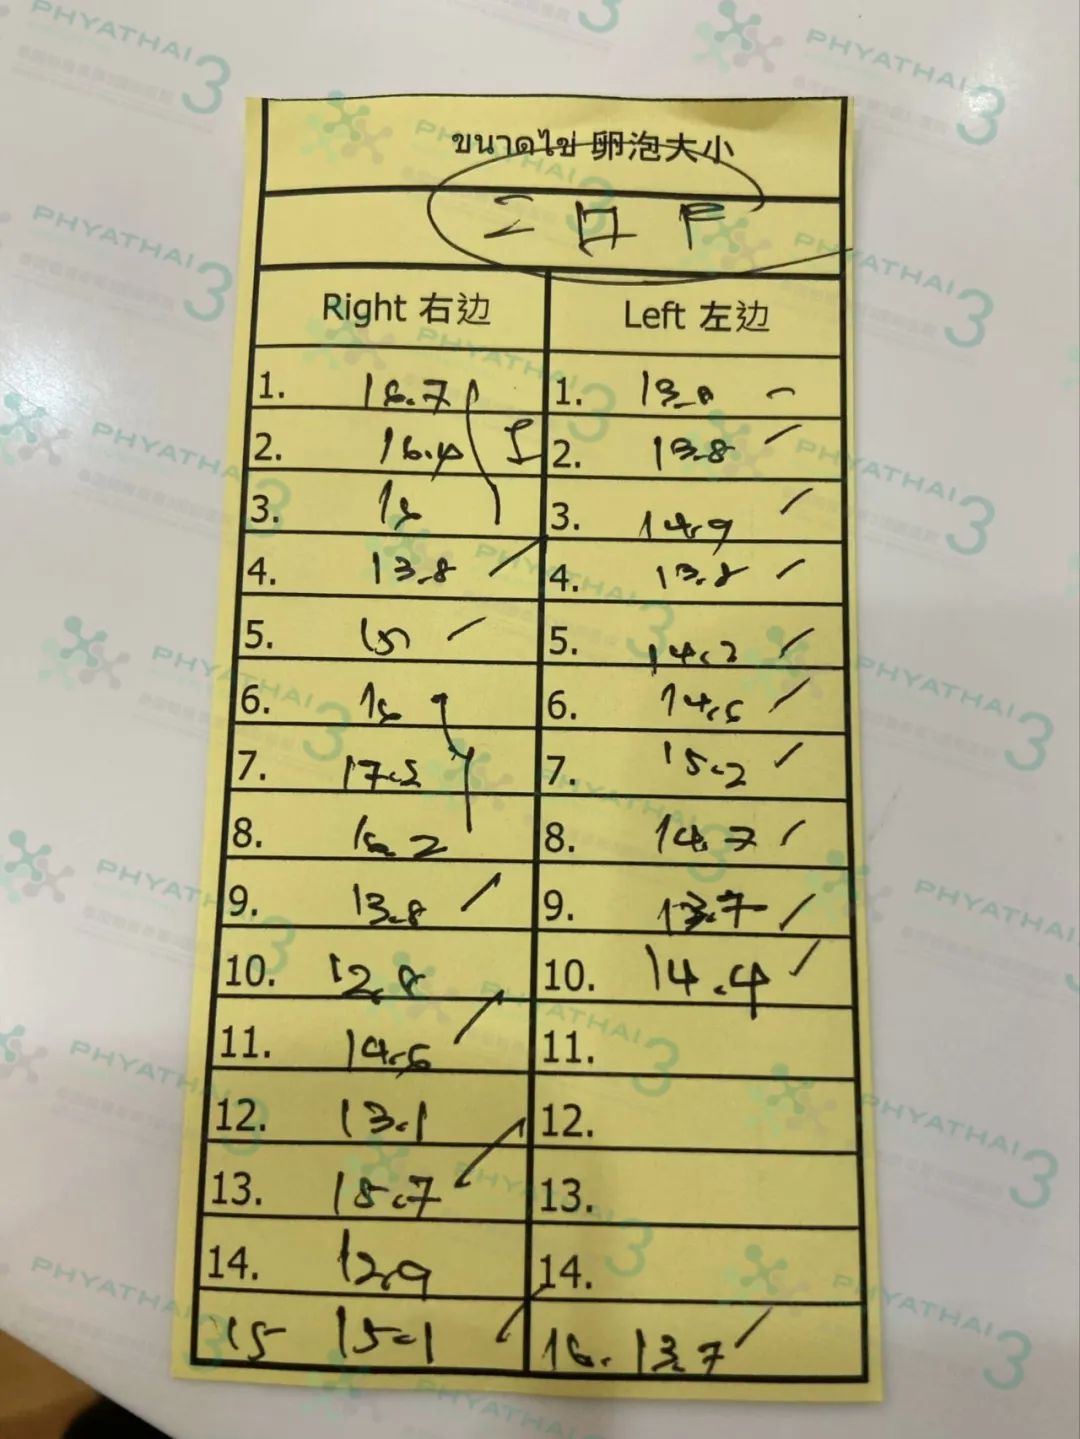 ขนาดไข่ 卵泡大小
27 F
Right 右边 Left 左边
1. 1. 13.8
2. 16.4 2. 13.8
3. 3. 14.9
4. 13.8 4. 13.8
5. 15 5. 14.2
6. 6. 14.5
7. 17.5 7. 15.2
8. 8. 14.7
9. 13.8 9. 13.7
10. 12.8 10. 14.4
11. 14.5 11.
12. 13.1 12.
13. 15.7 13.
14. 12.9 14.
15 15.1 16. 13.7
PHYATHAI 3